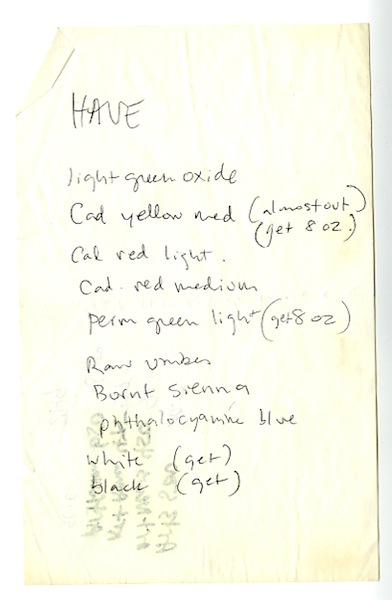 HAVE
light green oxide
Cad yellow med (almost out)
(get 8 oz.)
Cad red light.
Cad. red medium
perm green light (get 8 oz)
Raw umber
Burnt Sienna
phthalocyanine blue
white (get)
black (get)